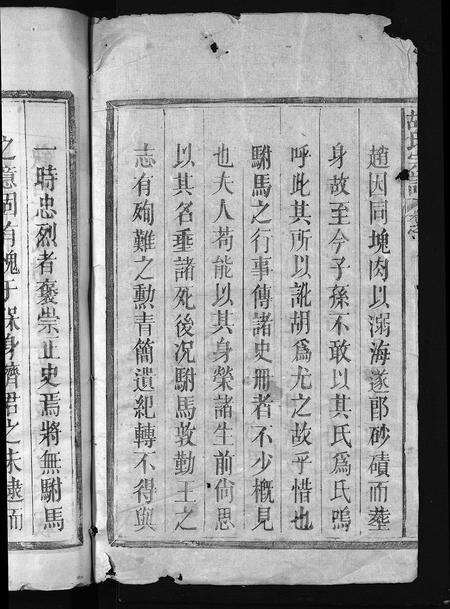 趙因同塊肉以溺海遂郎砂磧而塟
身故至今子孫不敢以其氏爲氏嗚
呼此其所以訛胡爲尤之故乎惜也
駙馬之行事傳諸史册者不少概見
也夫人苟能以其身榮諸生前尙思
以其名垂諸死後况駙馬敦勤王之
志有殉難之勲青簡遺紀轉不得與
一時忠烈者褒崇正史焉將無駙馬
之意固有愧于保身濟君之未逮而